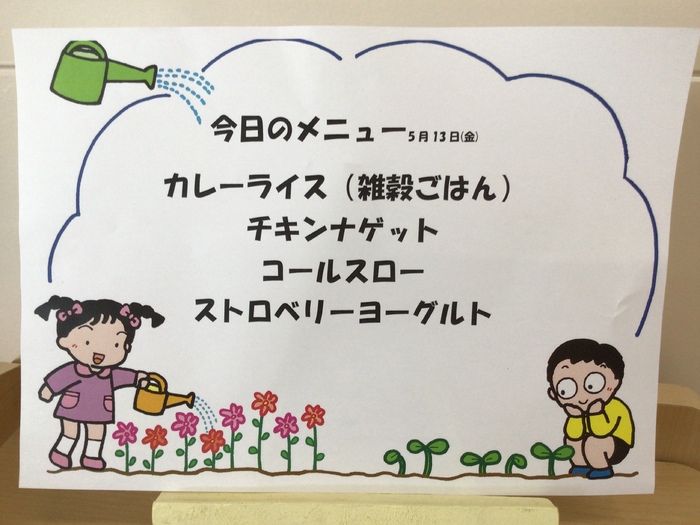 今日のメニュー5月13日(金)
カレーライス（雑穀ごはん）
チキンナゲット
コールスロー
ストロベリーヨーグルト